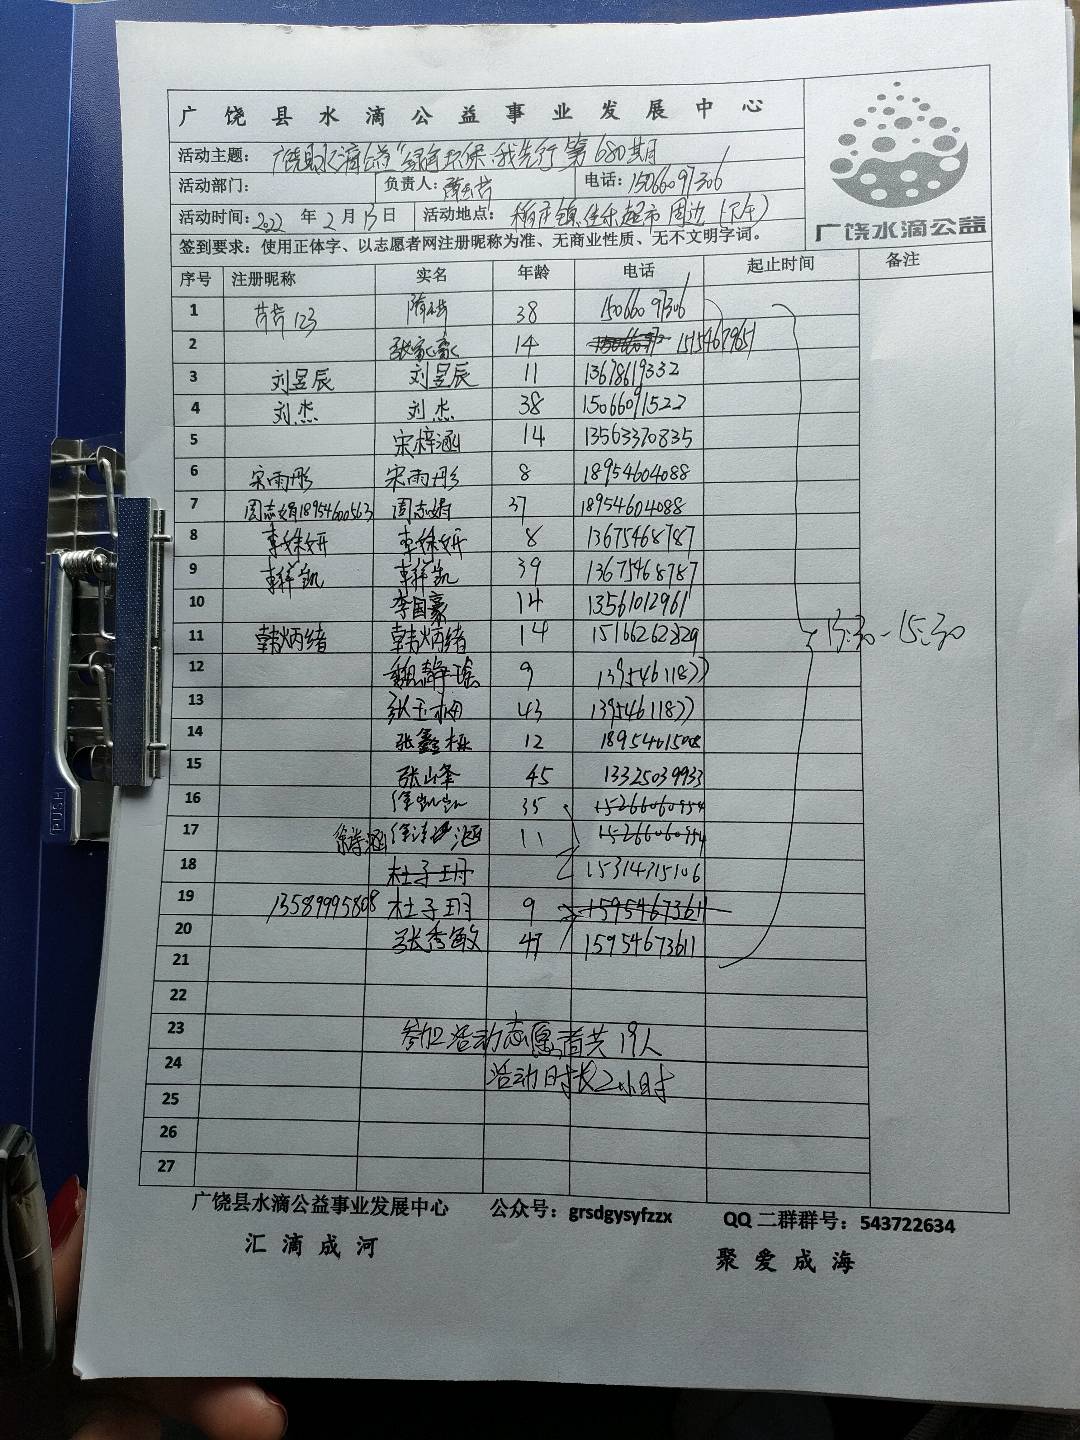 广饶县水滴公益事业发展中心
活动主题： 广饶县水滴公益"绿色环保 我先行 第680期
活动部门： 负责人： 电话：15066097306
活动时间：2022 年 2 月 13 日 活动地点： 稻庄镇佳乐超市周边（下午）
广饶水滴公益
签到要求：使用正体字、以志愿者网注册昵称为准、无商业性质、无不文明字词。
序号 注册昵称 实名 年龄 电话 起止时间 备注
1 芳芳123 38 15066097306
2 张家豪 14 15154679651
3 刘昱辰 刘昱辰 11 13678619332
4 刘杰 刘杰 38 15066091522
5 宋梓涵 14 13563370835
6 宋雨彤 宋雨彤 8 18954604088
7 周志娟18954600563 周志娟 37 18954604088
8 李姝妍 李姝妍 8 13675468787
9 李祥凯 李祥凯 39 13675468787
10 李国豪 14 13561012961
11 韩炳绪 韩炳绪 14 15166262829
13:30-15:30
12 魏静瑜 9 13954611877
13 张玉梅 43 13954611877
14 张鑫栎 12 18954615008
15 张山峰 45 13325039933
16 徐凯凯 35 15266060954
17 徐诗涵 徐诗涵 11 15266060954
18 杜子玥 15314315106
19 13589995808 杜子玥 9 15954673611
20 张秀敏 47 15954673611
21
22
23 参加活动志愿者共19人
24 活动时长2小时
25
26
27
广饶县水滴公益事业发展中心 公众号：grsdgysyfzzx QQ二群群号：543722634
汇滴成河 聚爱成海